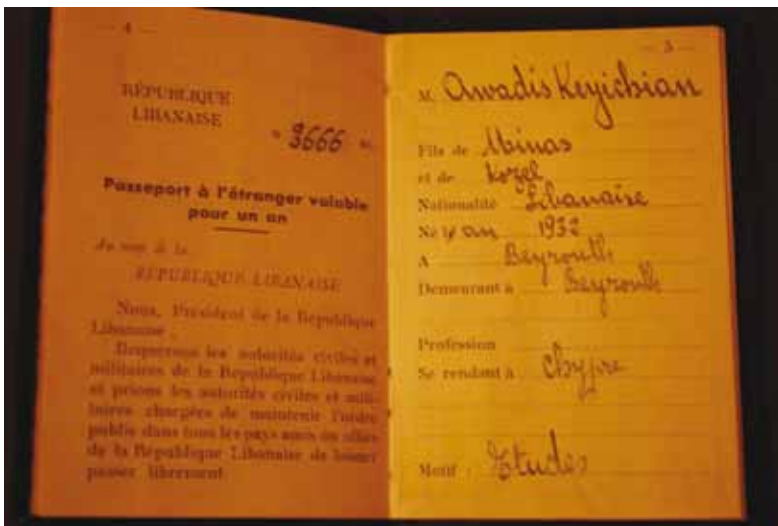 — 4 —
RÉPUBLIQUE
LIBANAISE
N° 3666
Passeport à l'étranger valable
pour un an
Au nom de la
RÉPUBLIQUE LIBANAISE
Nous, Président de la République
Libanaise,
Requerrons les autorités civiles et
militaires de la République Libanaise
et prions les autorités civiles et mili-
taires chargées de maintenir l'ordre
public dans tous les pays amis ou alliés
de la République Libanaise de laisser
passer librement
— 5 —
M. Awadis Keyichian
Fils de Minas
et de Kozel
Nationalité Libanaise
Né en an 1932
A Beyrouth
Demeurant à Beyrouth
Profession
Se rendant à Chypre
Motif : Etudes